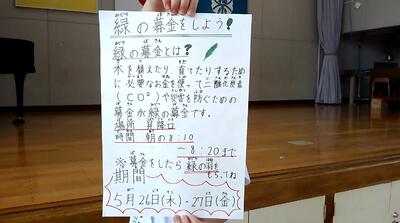 緑の募金をしよう!
みどり ぼきん
緑の募金とは?
木を植えたり、育てたりするため
に必要なお金を使って二酸化炭素
(CO²)や災害を防ぐための
募金が緑の募金です。
場所 昇降口
時間 朝の8:10
~8:20まで
※募金をしたら緑の羽を
もらってね
期間
5月26日(木)・27日(金)